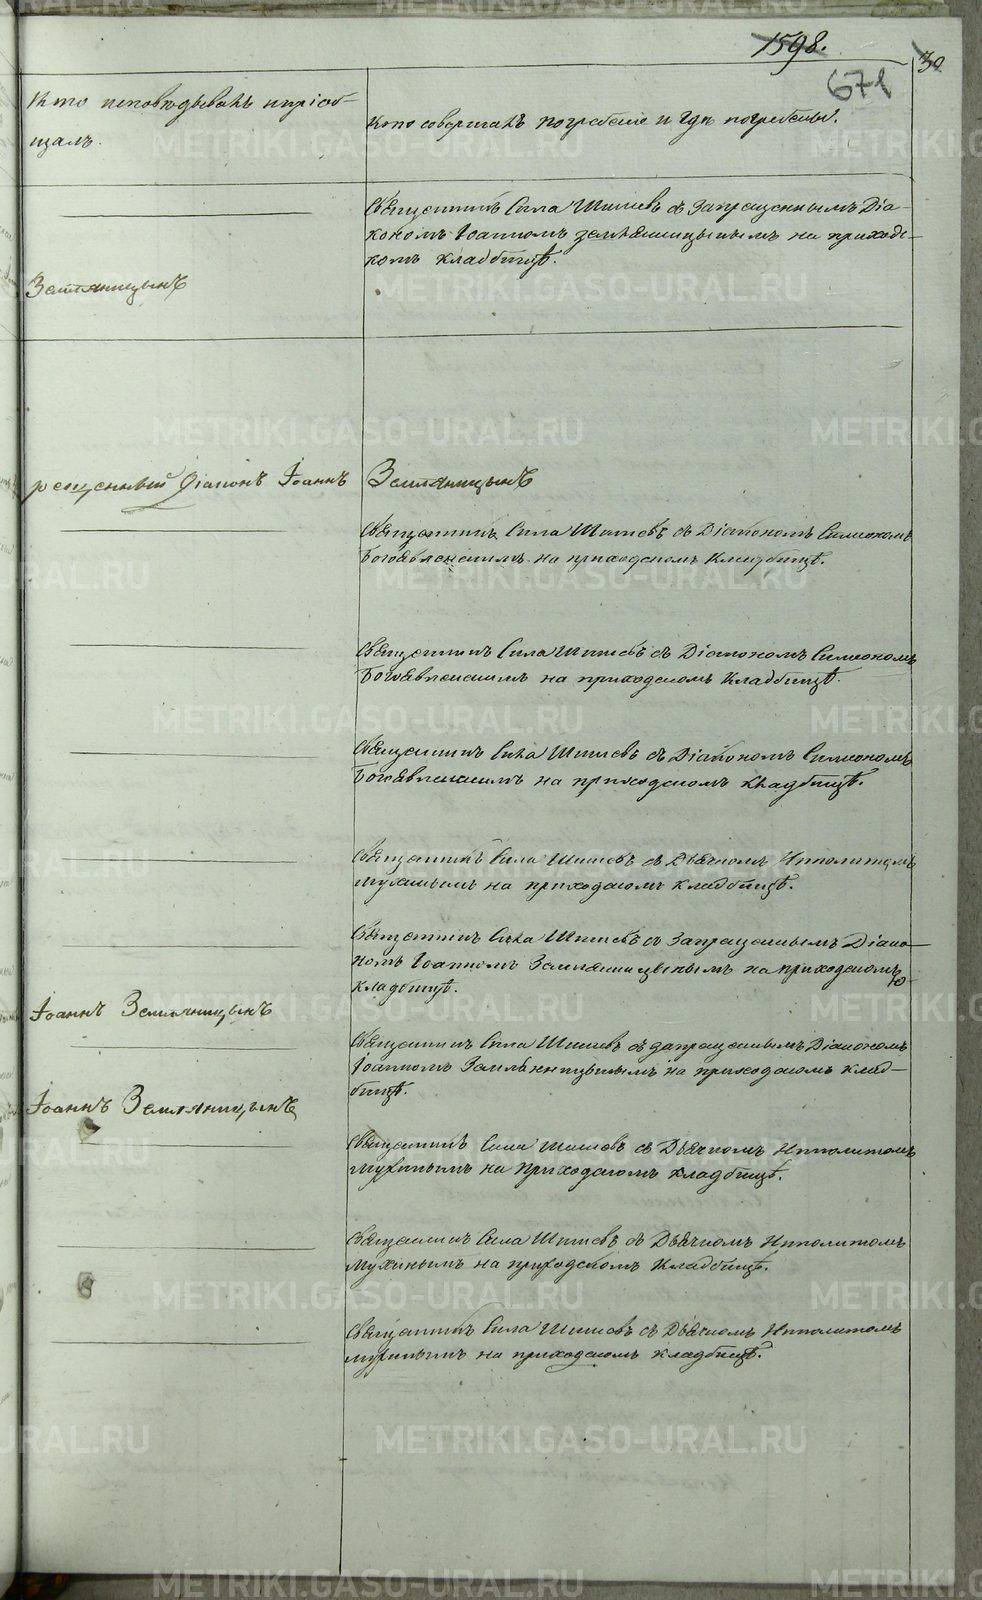 1598.
30
671
Кто исповѣдывалъ и пріоб-
щалъ.
Кто совершалъ погребеніе и гдѣ погребены.
Священникъ Сила Шишевъ съ запрещеннымъ Діа-
кономъ Іоанномъ Земляницынымъ на приходс-
комъ кладбищѣ.
Земляницынъ
рещенный Діаконъ Іоаннъ Земляницынъ
Священникъ Сила Шишевъ съ Діакономъ Симеономъ
Богоявленскимъ на приходскомъ кладбищѣ.
Священникъ Сила Шишевъ съ Діакономъ Симеономъ
Богоявленскимъ на приходскомъ кладбищѣ.
Священникъ Сила Шишевъ съ Діакономъ Симеономъ
Богоявленскимъ на приходскомъ кладбищѣ.
Священникъ Сила Шишевъ съ Дьячкомъ Ипполитомъ
Мухинымъ на приходскомъ кладбищѣ.
Священникъ Сила Шишевъ съ запрещеннымъ Діако-
номъ Іоанномъ Земляницынымъ на приходскомъ
кладбищѣ.
Іоаннъ Земляницынъ
Священникъ Сила Шишевъ съ запрещеннымъ Діакономъ
Іоанномъ Земляницынымъ на приходскомъ клад-
бищѣ.
Іоаннъ Земляницынъ
Священникъ Сила Шишевъ съ Дьячкомъ Ипполитомъ
Мухинымъ на приходскомъ кладбищѣ.
Священникъ Сила Шишевъ съ Дьячкомъ Ипполитомъ
Мухинымъ на приходскомъ кладбищѣ.
Священникъ Сила Шишевъ съ Дьячкомъ Ипполитомъ
Мухинымъ на приходскомъ кладбищѣ.
METRIKI.GASO-URAL.RU